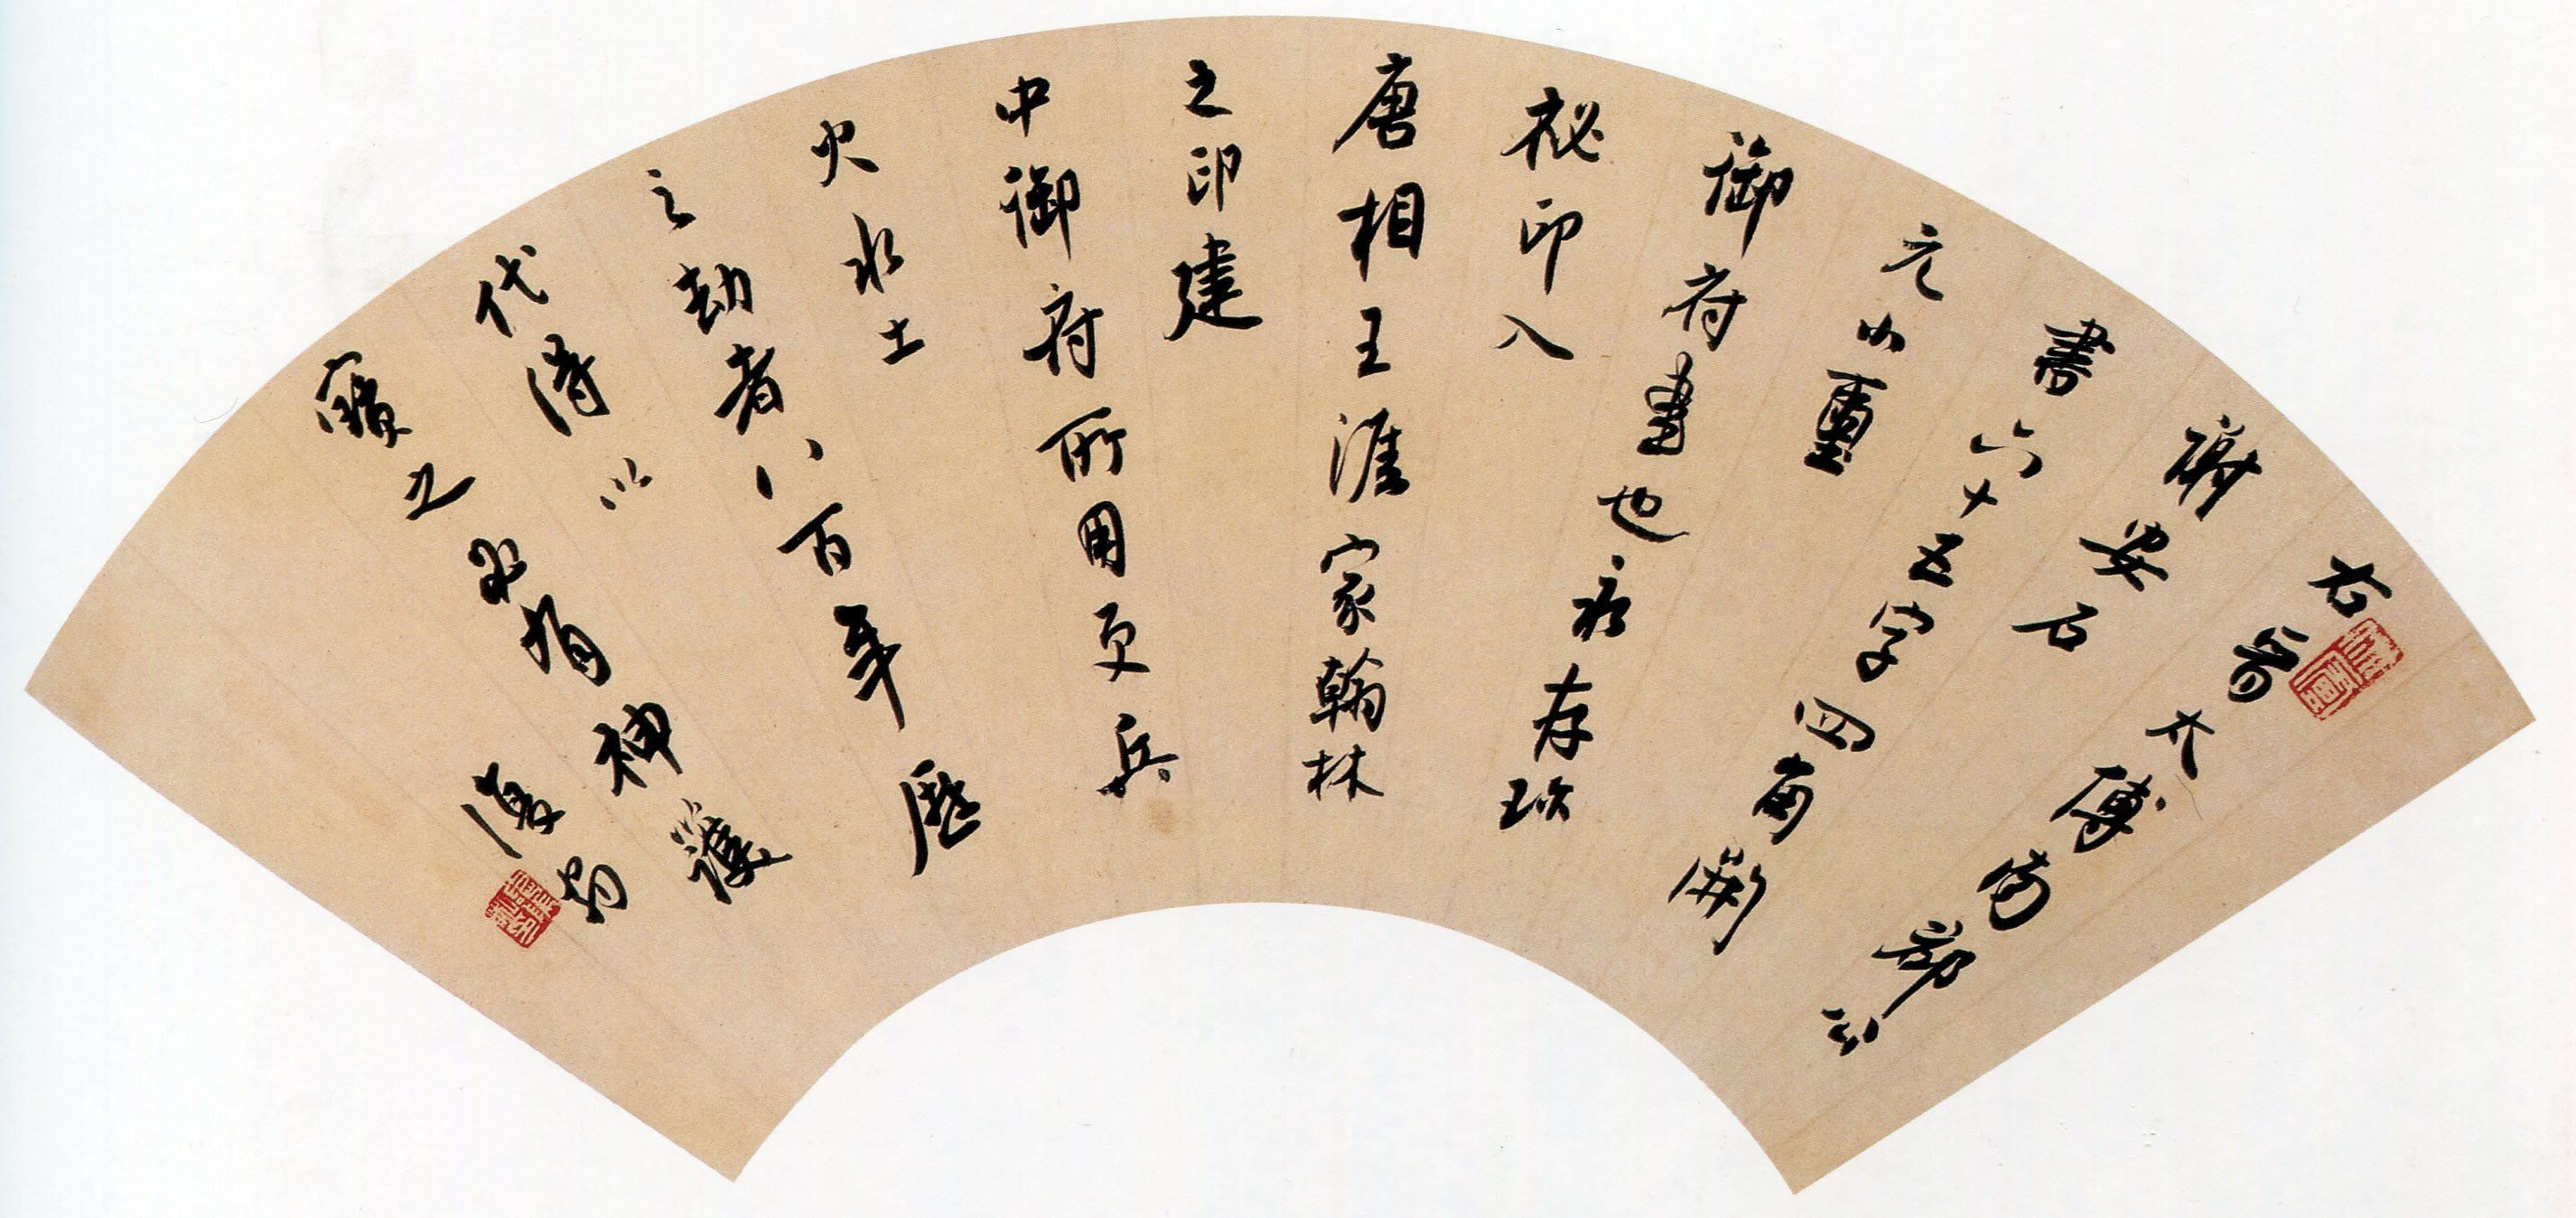 右晉太傅南郡公
謝安石
書六十五字四角開
元小璽
御府書也永存珍
秘印入
唐相王涯家翰林
之印建
中御府所用更兵
火水土
之劫者八百年歷
代得以
寶之有神護